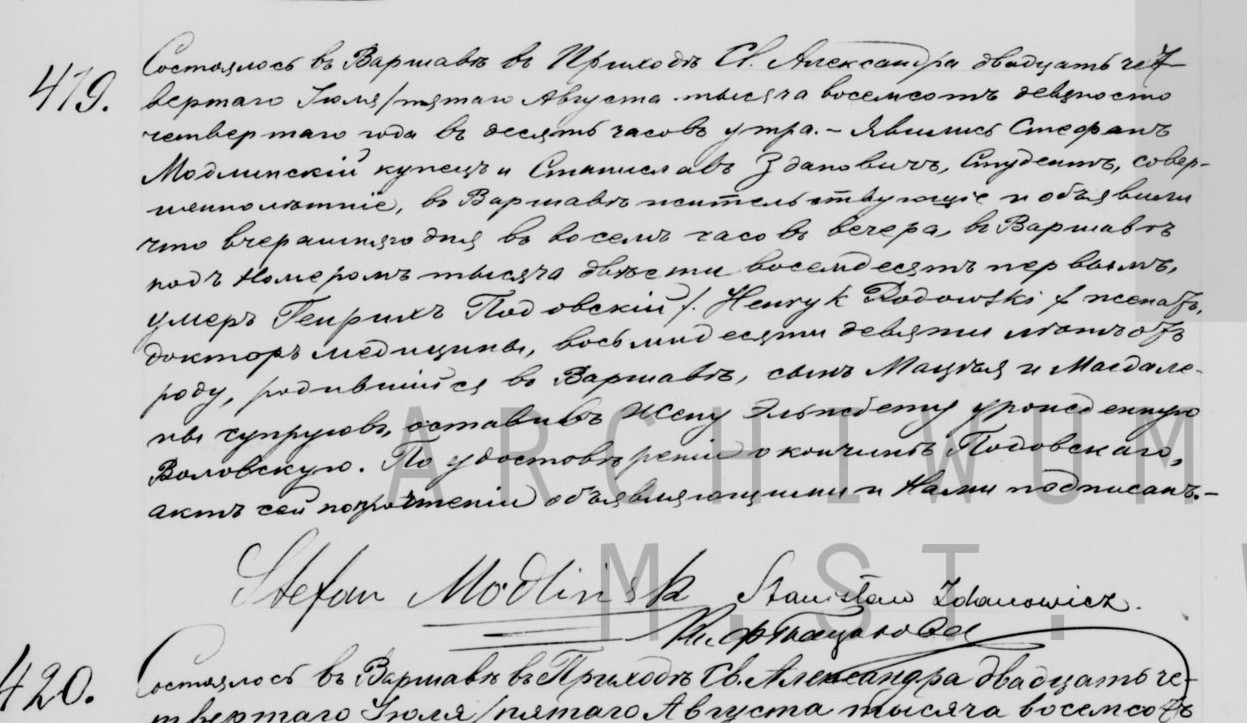 419.
Состоялось въ Варшавѣ въ Приходѣ Св. Александра двадцать чет-
вертаго Іюля/пятаго Августа тысяча восемсотъ девяносто
четвертаго года въ десять часовъ утра. – Явились Стефанъ
Модлинскій купецъ и Станиславъ Здановичъ, Студентъ, совер-
шеннолѣтніе, въ Варшавѣ жительствующіе и объявили
что вчерашняго дня въ восемь часовъ вечера, въ Варшавѣ
подъ Номеромъ тысяча двѣсти восемдесятъ первымъ,
умеръ Генрихъ Подовскій /. Henryk Podowski / женатъ,
докторъ медицины, восьмидесяти девяти лѣтъ отъ
роду, родившійся въ Варшавѣ, сынъ Мацѣя и Магдале-
ны супруговъ, оставивъ Жену Эльжбету урожденную
Воловскую. По удостовѣреніи о кончинѣ Подовскаго,
актъ сей по прочтеніи объявляющими и Нами подписанъ. –
Stefan Modliński Stanisław Zdanowicz.
420.
Состоялось въ Варшавѣ въ Приходѣ Св. Александра двадцать че-
твертаго Іюля/пятаго Августа тысяча восемсотъ
ARCHIWUM
M.ST.